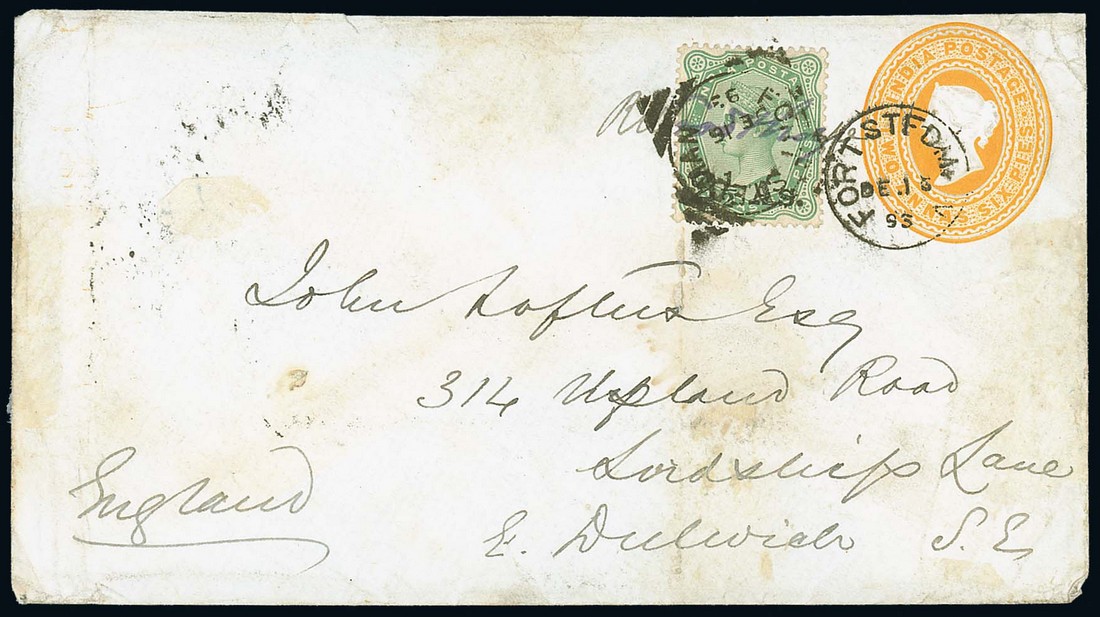 INDIA POSTAGE
SIX PIES
FORT ST F.D.M.
DE 18
95
John Loftus Esq
314 Upland Road
Lordship Lane
E. Dulwich S.E.
England